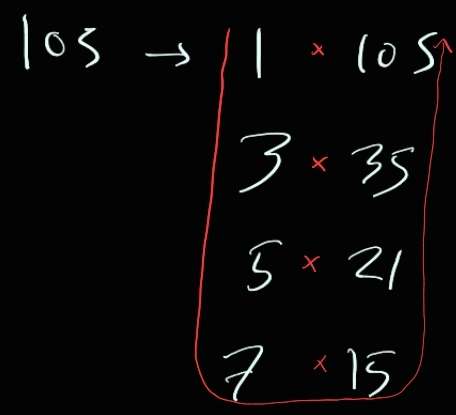 105 → 1 × 105
3 × 35
5 × 21
7 × 15